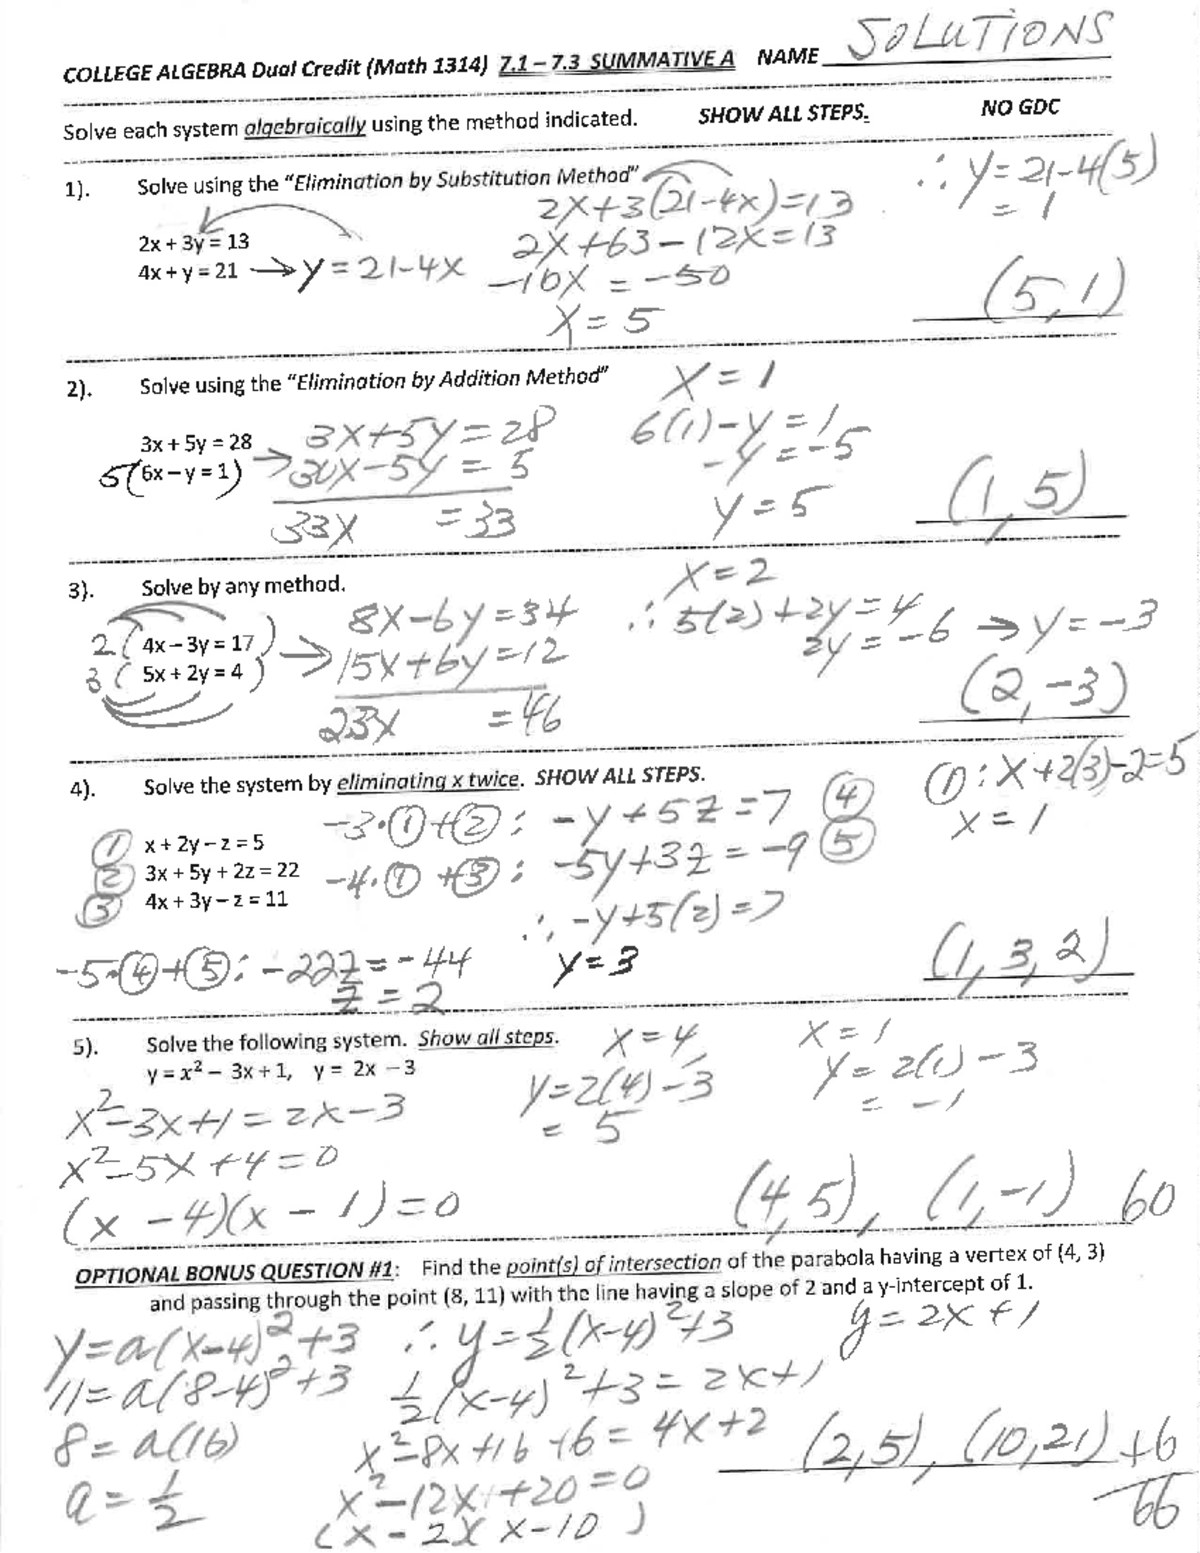 SOLUTIONS
COLLEGE ALGEBRA Dual Credit (Math 1314) 7.1 – 7.3 SUMMATIVE A NAME
Solve each system algebraically using the method indicated. SHOW ALL STEPS. NO GDC
1). Solve using the “Elimination by Substitution Method”
2x + 3y = 13
4x + y = 21 → y = 21-4x
2x+3(21-4x)=13
2x+63-12x=13
-10x = -50
x = 5
∴ y = 21-4(5)
= 1
(5,1)
2). Solve using the “Elimination by Addition Method”
3x + 5y = 28
5(6x – y = 1) →
3x+5y=28
30x-5y = 5
33x = 33
x = 1
6(1)-y = 1
-y = -5
y = 5
(1,5)
3). Solve by any method.
2( 4x – 3y = 17 )
3( 5x + 2y = 4 ) →
8x-6y=34
15x+6y=12
23x = 46
x = 2
∴ 5(2)+2y=4
2y = -6 → y = -3
(2,-3)
4). Solve the system by eliminating x twice. SHOW ALL STEPS.
① x + 2y – z = 5
② 3x + 5y + 2z = 22
③ 4x + 3y – z = 11
-3·①+②: -y+5z=7 ④
-4·①+③: -5y+3z=-9 ⑤
∴ -y+5(2)=7
y=3
-5·④+⑤: -22z=-44
z = 2
①: x+2(3)-2=5
x = 1
(1,3,2)
5). Solve the following system. Show all steps.
y = x² – 3x + 1, y = 2x – 3
x²-3x+1=2x-3
x²-5x+4=0
(x-4)(x-1)=0
x = 4
y=2(4)-3
= 5
x = 1
y = 2(1)-3
= -1
(4,5), (1,-1) 60
OPTIONAL BONUS QUESTION #1: Find the point(s) of intersection of the parabola having a vertex of (4, 3)
and passing through the point (8, 11) with the line having a slope of 2 and a y-intercept of 1.
y=a(x-4)²+3
11=a(8-4)²+3
8=a(16)
a = 1/2
∴ y=1/2(x-4)²+3
y = 2x+1
1/2(x-4)²+3=2x+1
x²-8x+16+6=4x+2
x²-12x+20=0
(x-2)(x-10)
(2,5), (10,21) +6
66